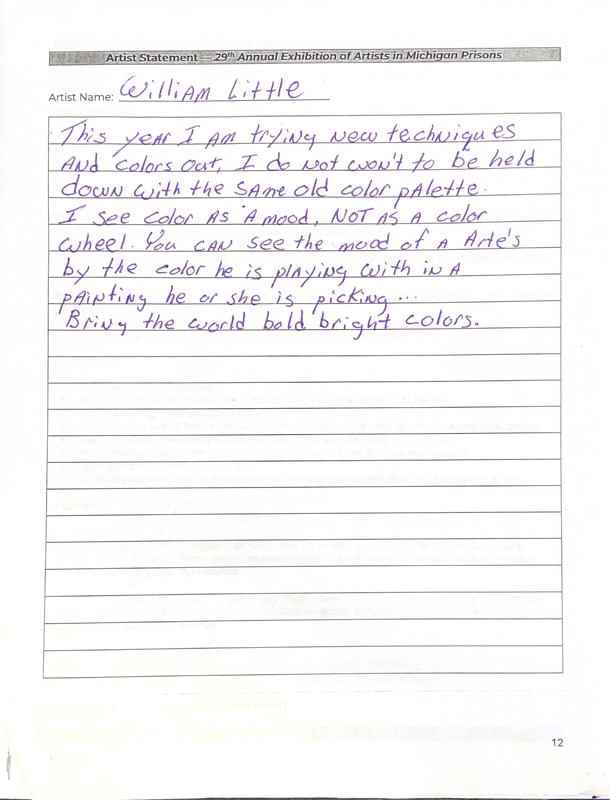 Artist Statement — 29th Annual Exhibition of Artists in Michigan Prisons
Artist Name: William Little
This year I am trying new techniques
and colors out, I do not won't to be held
down with the same old color palette.
I see color as a mood, not as a color
wheel. You can see the mood of a Arte's
by the color he is playing with in a
painting he or she is picking...
Bring the world bold bright colors.
12